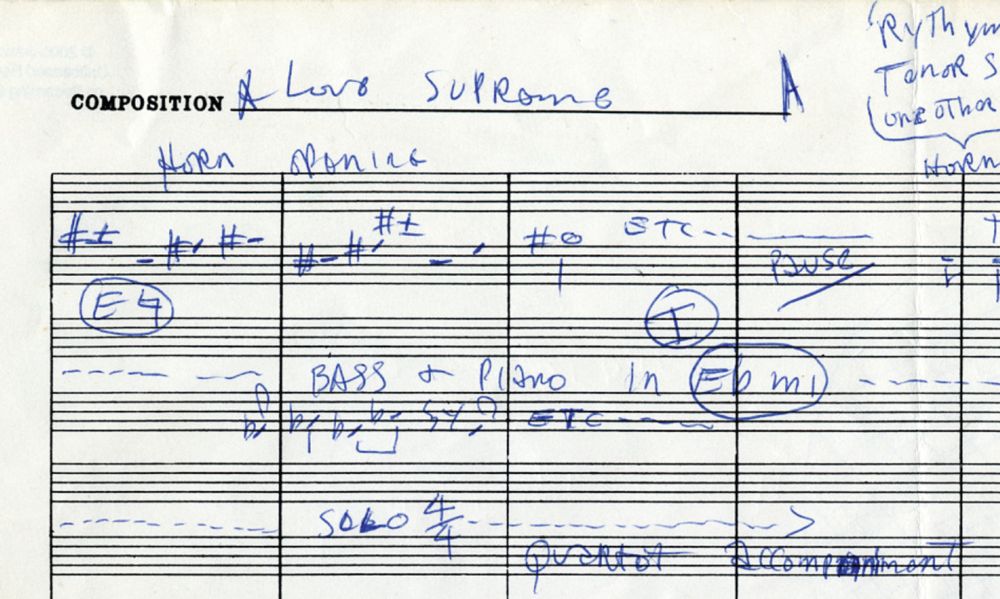 Rythym
Tenor S
one other
COMPOSITION A Love Supreme A
Horn
Horn opening
ETC
pause
E 4
I
BASS + Piano in Eb mi
ETC
SOLO 4/4
Quartet Accompaniment